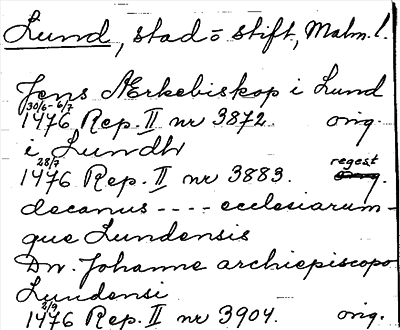 Lund, stad o stift, Malm. l.
Jens Ærkebiskop i Lund
30/6-6/7
1476 Rep. II nr 3872. orig
i Lundh
28/7 regest
1476 Rep. II nr 3883. orig.
decanus ---- ecclesiarum-
que Lundensis
Dn. Johanne archiepiscopo
Lundensi
2/9
1476 Rep. II nr 3904. orig.